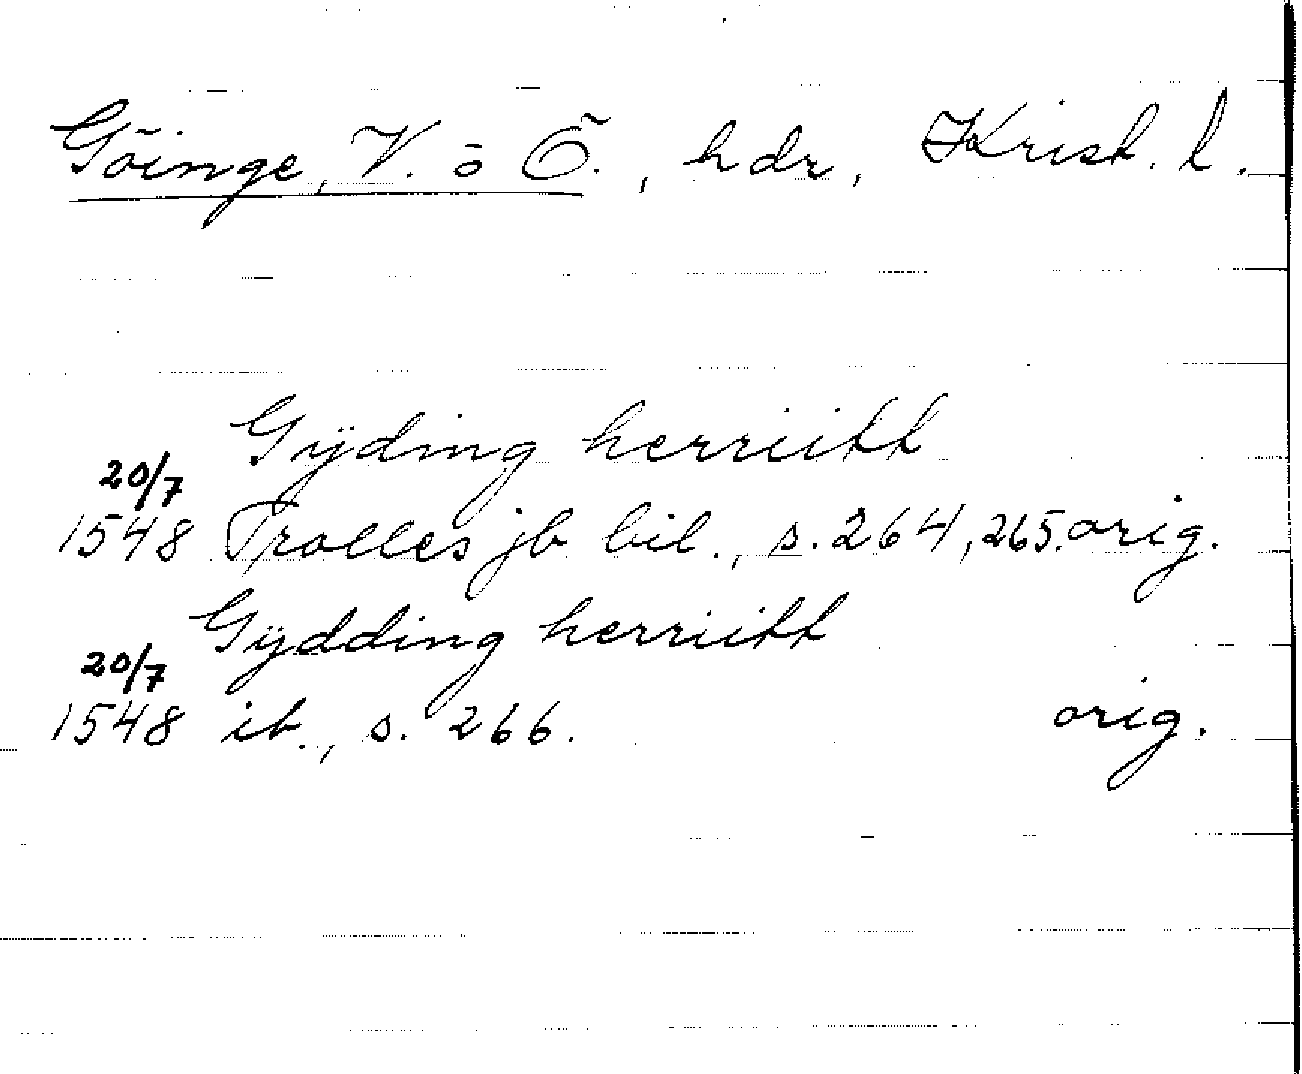 Göinge, V. o Ö., hdr, Krist. l.
Gÿding herriitt
20/7
1548 Trolles jb bil., s. 264, 265. orig.
Gÿdding herriitt
20/7
1548 ib., s. 266. orig.